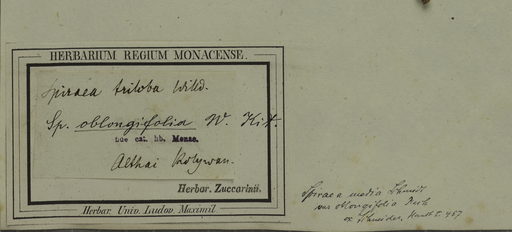 HERBARIUM REGIUM MONACENSE.
Spiraea triloba Willd.
Sp. oblongifolia W. Kit.
hb. Monac.
Althai Kolywan.
Herbar. Zuccarinii.
Herbar. Univ. Ludov. Maximil.
Spiraea media Schmidt
var oblongifolia
ex Schneider, 457